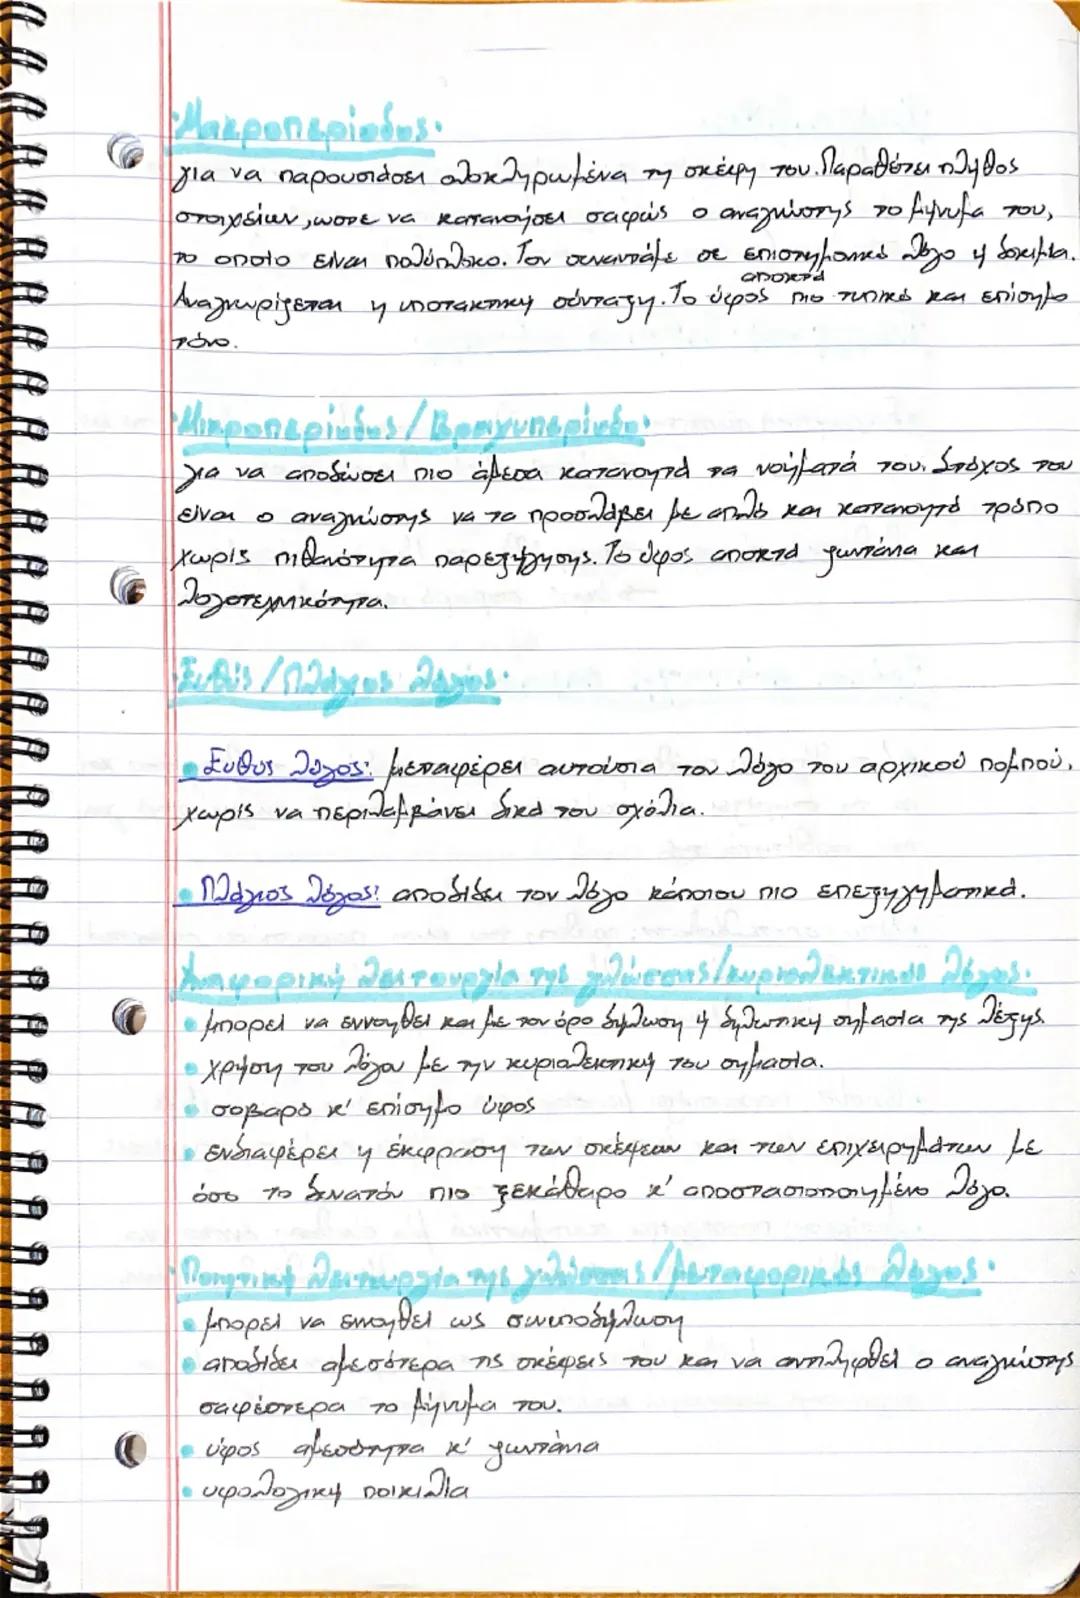 ·Μακροπερίοδος·
για να παρουσιάσει ολοκληρωμένα τη σκέψη του. Παραθέτει πλήθος
στοιχείων, ώστε να κατανοήσει σαφώς ο αναγνώστης το μήνυμα του,
το οποίο είναι πολύπλοκο. Τον συναντάμε σε επιστημονικό λόγο ή δοκίμια.
αποκτά
Αναγνωρίζεται η υποτακτική σύνταξη. Το ύφος πιο τυπικό και επίσημο
τόνο.
·Μικροπερίοδος/Βραχυπερίοδο·
για να αποδώσει πιο άμεσα κατανοητά τα νοήματά του. Στόχος του
είναι ο αναγνώστης να το προσλάβει με απλό και κατανοητό τρόπο
χωρίς πιθανότητα παρεξήγησης. Το ύφος αποκτά ζωντάνια και
λογοτεχνικότητα.
·Ευθύς/Πλάγιος λόγος·
• Ευθύς λόγος: μεταφέρει αυτούσια τον λόγο του αρχικού πομπού,
χωρίς να περιλαμβάνει δικά του σχόλια.
• Πλάγιος λόγος: αποδίδει τον λόγο κάποιου πιο επεξηγηματικά.
Αναφορική λειτουργία της γλώσσας/κυριολεκτικός λόγος·
• μπορεί να εννοηθεί και με τον όρο δήλωση ή δηλωτική σημασία της λέξης.
• χρήση του λόγου με την κυριολεκτική του σημασία.
• σοβαρό κ' επίσημο ύφος
• ενδιαφέρει η έκφραση των σκέψεων και των επιχειρημάτων με
όσο το δυνατόν πιο ξεκάθαρο κ' αποστασιοποιημένο λόγο.
·Ποιητική λειτουργία της γλώσσας/μεταφορικός λόγος·
• μπορεί να εννοηθεί ως συνυποδήλωση
• αποδίδει αμεσότερα τις σκέψεις του και να αντιληφθεί ο αναγνώστης
σαφέστερα το μήνυμα του.
• ύφος αμεσότητα κ' ζωντάνια
• υφολογική ποικιλία